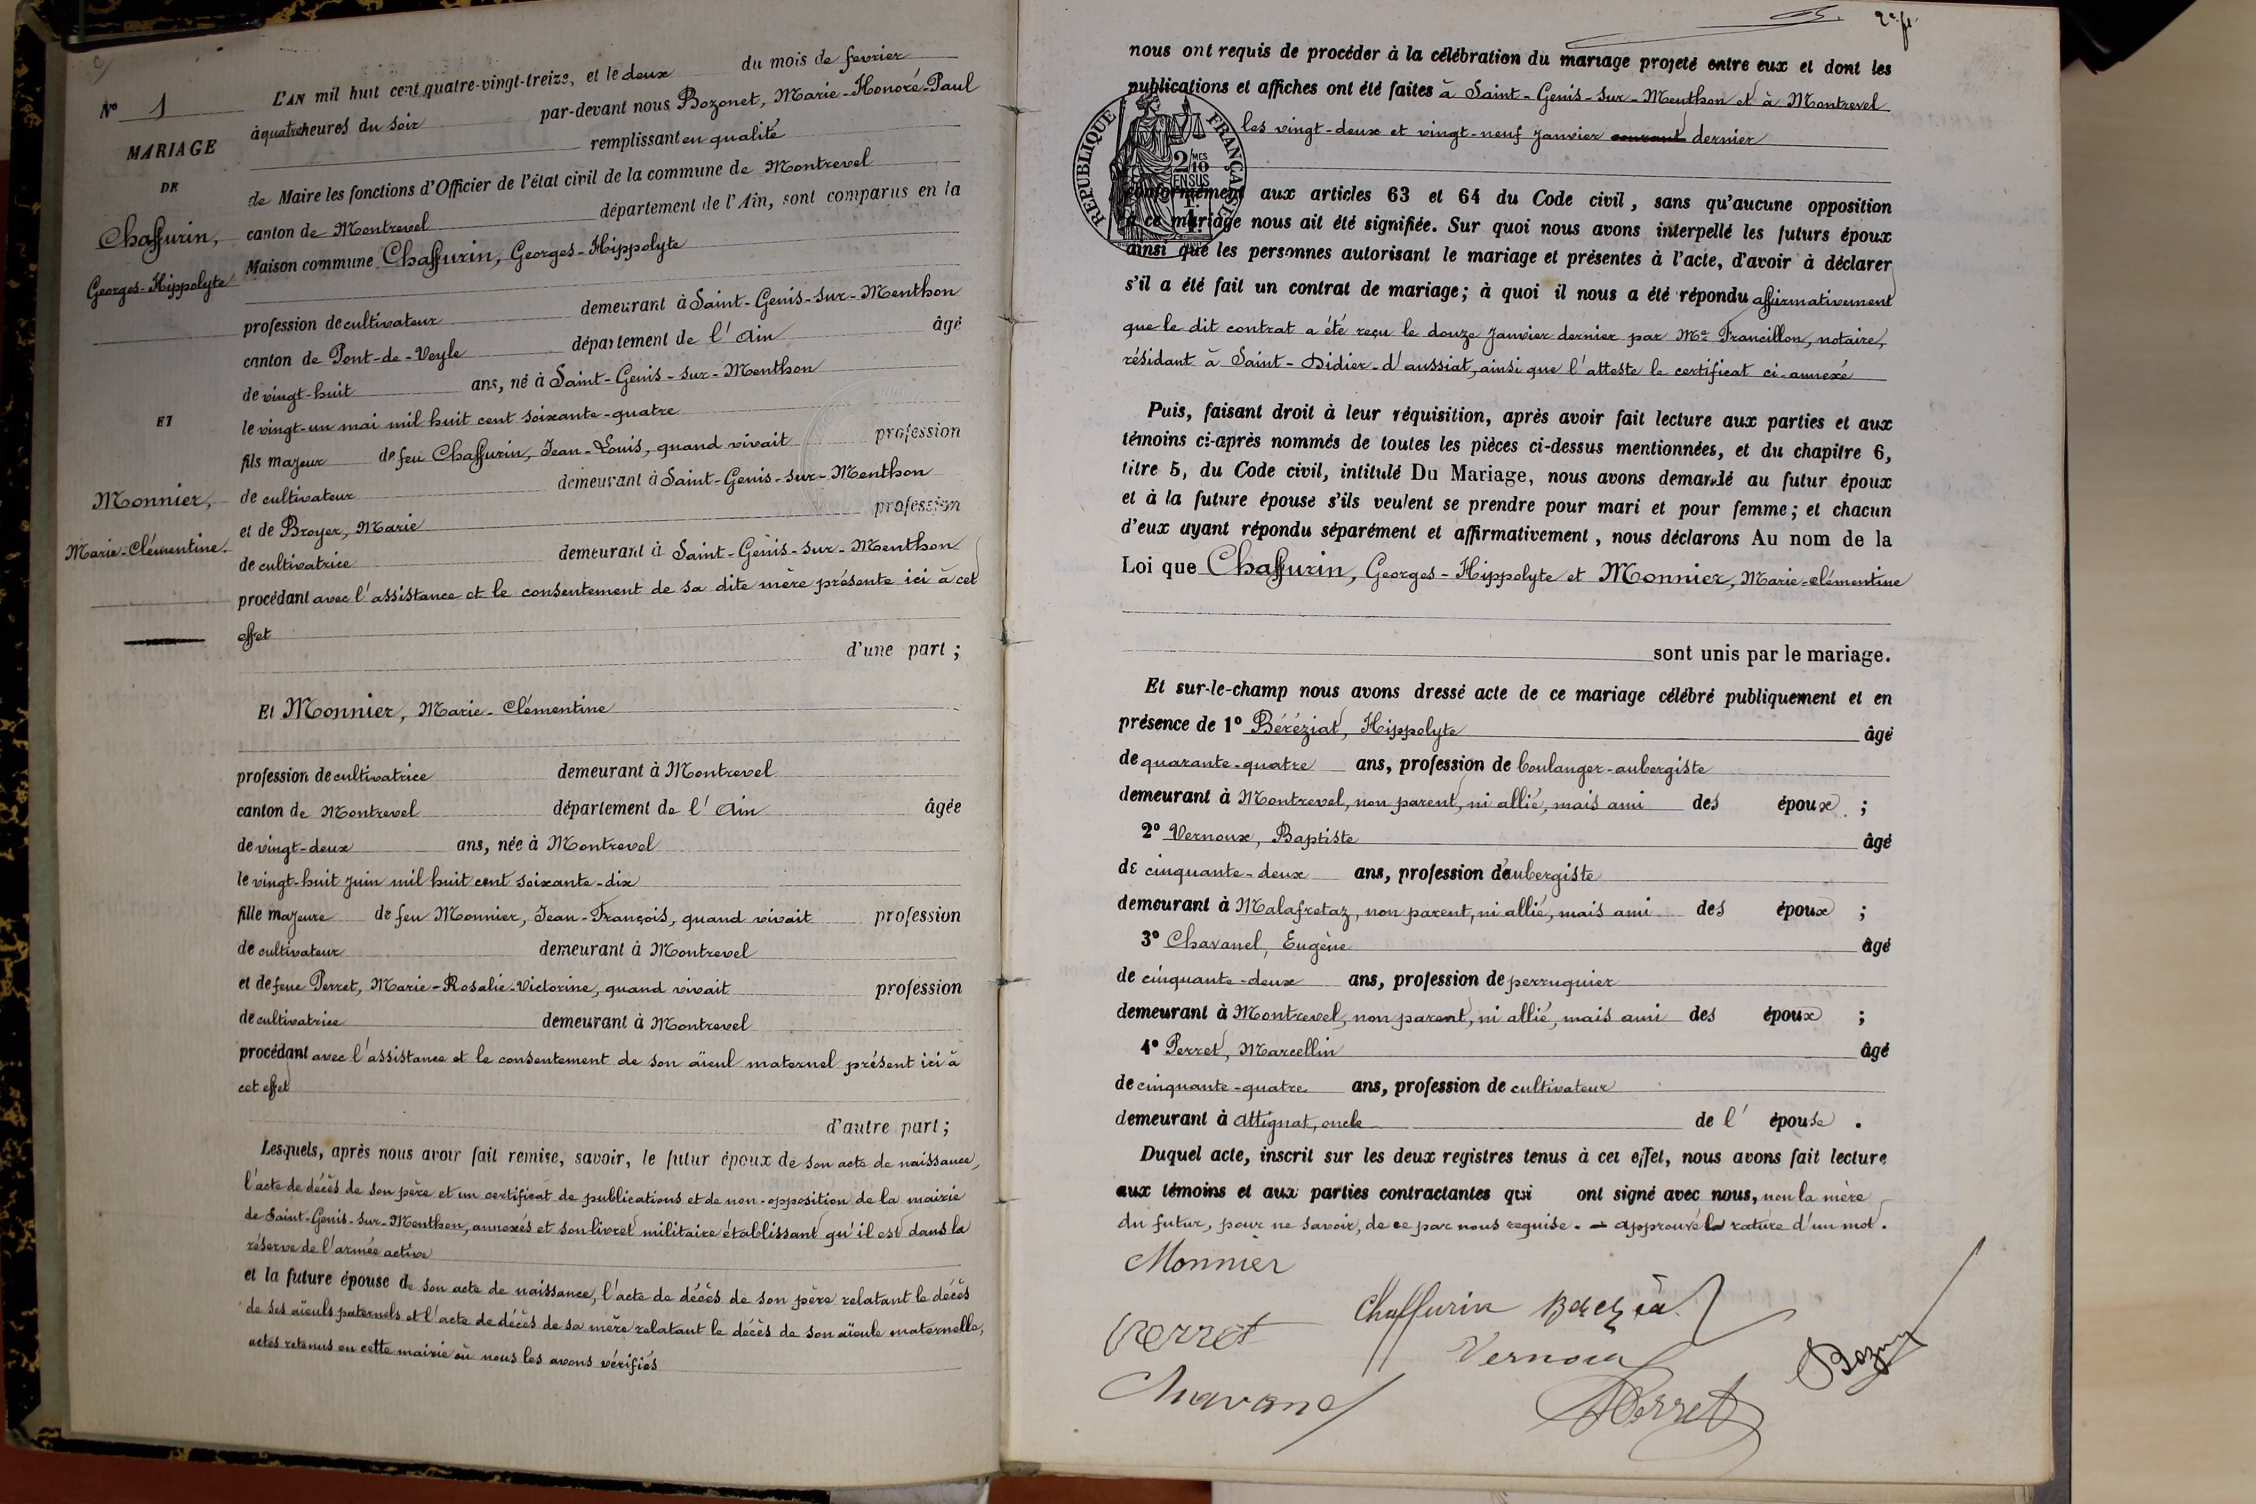 N° 1
MARIAGE
DE
Chaffurin,
Georges-Hippolyte
ET
Monnier,
Marie-Clémentine.
L'AN mil huit cent quatre-vingt-treize, et le deux du mois de fevrier
à quatre heures du soir par-devant nous Bozonet, Marie-Honoré-Paul
remplissant en qualité
de Maire les fonctions d'Officier de l'état civil de la commune de Montrevel
canton de Montrevel département de l'Ain, sont comparus en la
Maison commune Chaffurin, Georges-Hippolyte
profession de cultivateur demeurant à Saint-Genis-sur-Menthon
canton de Pont-de-Veyle département de l'Ain âgé
de vingt-huit ans, né à Saint-Genis-sur-Menthon
le vingt-un mai mil huit cent soixante-quatre
fils majeur de feu Chaffurin, Jean-Louis, quand vivait profession
de cultivateur demeurant à Saint-Genis-sur-Menthon
et de Broyer, Marie profession
de cultivatrice demeurant à Saint-Genis-sur-Menthon
procédant avec l'assistance et le consentement de sa dite mère présente ici à cet
effet
d'une part ;
Et Monnier, Marie-Clémentine
profession de cultivatrice demeurant à Montrevel
canton de Montrevel département de l'Ain âgée
de vingt-deux ans, née à Montrevel
le vingt-huit juin mil huit cent soixante-dix
fille majeure de feu Monnier, Jean-François, quand vivait profession
de cultivateur demeurant à Montrevel
et de feue Perret, Marie-Rosalie-Victorine, quand vivait profession
de cultivatrice demeurant à Montrevel
procédant avec l'assistance et le consentement de son aïeul maternel présent ici à
cet effet
d'autre part ;
Lesquels, après nous avoir fait remise, savoir, le futur époux de son acte de naissance,
l'acte de décès de son père et un certificat de publications et de non-opposition de la mairie
de Saint-Genis-sur-Menthon, annexés et son livret militaire établissant qu'il est dans la
réserve de l'armée active
et la future épouse de son acte de naissance, l'acte de décès de son père relatant le décès
de ses aïeuls paternels et l'acte de décès de sa mère relatant le décès de son aïeule maternelle,
actes retenus en cette mairie où nous les avons vérifiés
2e f.
nous ont requis de procéder à la célébration du mariage projeté entre eux et dont les
publications et affiches ont été faites à Saint-Genis-sur-Menthon et à Montrevel
les vingt-deux et vingt-neuf janvier courant dernier
RÉPUBLIQUE FRANÇAISE
2/10 MES
EN SUS
conformément aux articles 63 et 64 du Code civil, sans qu'aucune opposition
à ce mariage nous ait été signifiée. Sur quoi nous avons interpellé les futurs époux
ainsi que les personnes autorisant le mariage et présentes à l'acte, d'avoir à déclarer
s'il a été fait un contrat de mariage ; à quoi il nous a été répondu affirmativement
que le dit contrat a été reçu le douze janvier dernier par Me Francillon, notaire,
résidant à Saint-Didier-d'aussiat, ainsi que l'atteste le certificat ci-annexé
Puis, faisant droit à leur réquisition, après avoir fait lecture aux parties et aux
témoins ci-après nommés de toutes les pièces ci-dessus mentionnées, et du chapitre 6,
titre 5, du Code civil, intitulé Du Mariage, nous avons demandé au futur époux
et à la future épouse s'ils veulent se prendre pour mari et pour femme ; et chacun
d'eux ayant répondu séparément et affirmativement, nous déclarons Au nom de la
Loi que Chaffurin, Georges-Hippolyte et Monnier, Marie-clémentine
sont unis par le mariage.
Et sur-le-champ nous avons dressé acte de ce mariage célébré publiquement et en
présence de 1° Béréziat, Hippolyte âgé
de quarante-quatre ans, profession de boulanger-aubergiste
demeurant à Montrevel, non parent, ni allié, mais ami des époux ;
2° Vernoux, Baptiste âgé
de cinquante-deux ans, profession d'aubergiste
demeurant à Malafretaz, non parent, ni allié, mais ami des époux ;
3° Chavanel, Eugène âgé
de cinquante-deux ans, profession de perruquier
demeurant à Montrevel, non parent, ni allié, mais ami des époux ;
4° Perret, Marcellin âgé
de cinquante-quatre ans, profession de cultivateur
demeurant à Attignat, oncle de l'épouse.
Duquel acte, inscrit sur les deux registres tenus à cet effet, nous avons fait lecture
aux témoins et aux parties contractantes qui ont signé avec nous, non la mère
du futur, pour ne savoir, de ce par nous requise. - approuvé la rature d'un mot.
Monnier
Chaffurin Béréziat
Perret Vernoux
Chavanel Perret